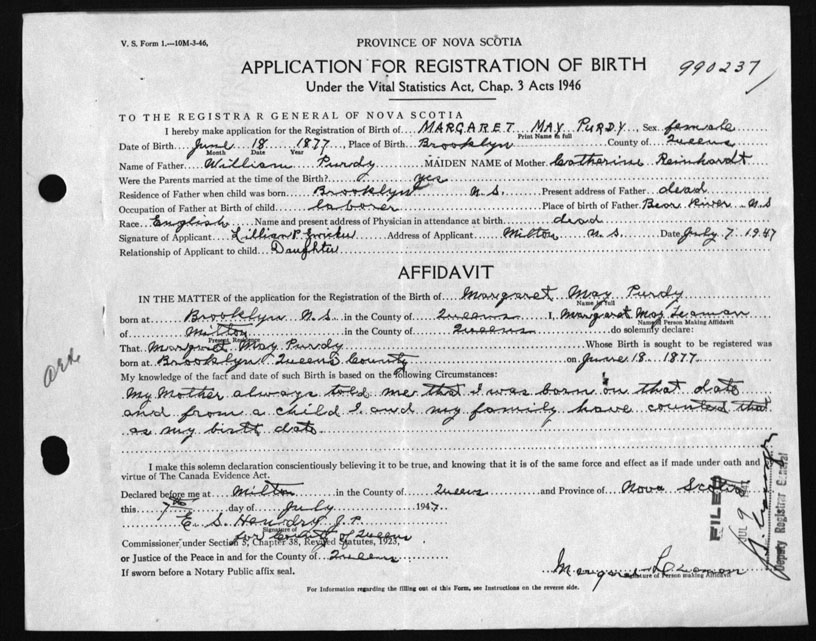 V. S. Form 1.—10M-3-46,
PROVINCE OF NOVA SCOTIA
APPLICATION FOR REGISTRATION OF BIRTH
990237
Under the Vital Statistics Act, Chap. 3 Acts 1946
TO THE REGISTRAR GENERAL OF NOVA SCOTIA
I hereby make application for the Registration of Birth of MARGARET MAY PURDY Sex female
Print Name in full
Date of Birth June 18 1877 Place of Birth Brooklyn County of Queens
Month Date Year
Name of Father William Purdy MAIDEN NAME of Mother Catherine Reinhardt
Were the Parents married at the time of the Birth? yes
Residence of Father when child was born Brooklyn N.S. Present address of Father dead
Occupation of Father at Birth of child laborer Place of birth of Father Bear River N.S
Race English Name and present address of Physician in attendance at birth dead
Signature of Applicant Lillian P. Address of Applicant Milton N.S. Date July 7 1947
Relationship of Applicant to child Daughter
AFFIDAVIT
IN THE MATTER of the application for the Registration of the Birth of Margaret May Purdy
Name in full
born at Brooklyn N.S. in the County of Queens I, Margaret May Leaman
Name of Person Making Affidavit
of Milton in the County of Queens do solemnly declare:
Present Residence
That Margret May Purdy Whose Birth is sought to be registered was
born at Brooklyn Queens County on June 18 1877.
My knowledge of the fact and date of such Birth is based on the following Circumstances:
My Mother always told me that I was born on that date
and from a child I and my family have counted that
as my birth date
I make this solemn declaration conscientiously believing it to be true, and knowing that it is of the same force and effect as if made under oath and
virtue of The Canada Evidence Act.
Declared before me at Milton in the County of Queens and Province of Nova Scotia
this 7th day of July 1947
E. S. Hendry J.P.
Signature of
for County of Queens
Commissioner under Section 5, Chapter 38, Revised Statutes, 1923,
or Justice of the Peace in and for the County of Queens
If sworn before a Notary Public affix seal.
Margaret Leaman
Signature of Person making Affidavit
For Information regarding the filling out of this Form, see Instructions on the reverse side.
FILED
JUL 9
Deputy Registrar General